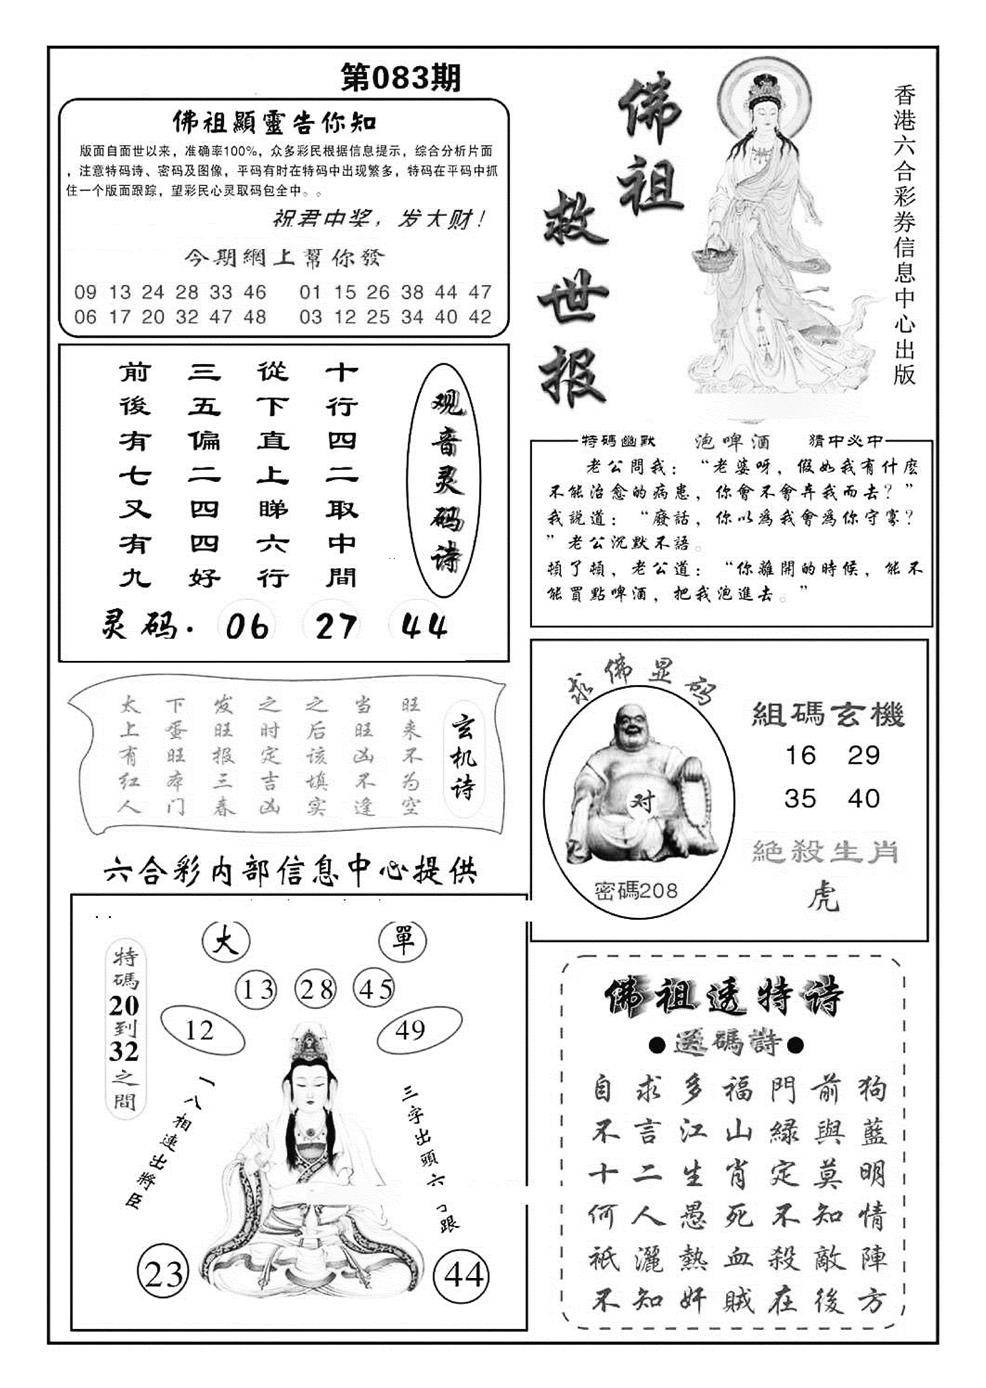 第083期
佛祖顯靈告你知
版面自面世以来，准确率100%，众多彩民根据信息提示，综合分析片面
，注意特码诗、密码及图像，平码有时在特码中出现繁多，特码在平码中抓
住一个版面跟踪，望彩民心灵取码包全中。。
祝君中奖，发大财！
今期網上幫你發
09 13 24 28 33 46 01 15 26 38 44 47
06 17 20 32 47 48 03 12 25 34 40 42
佛祖
救世报
香港六合彩券信息中心出版
观音灵码诗
十行四二取中間
從下直上睇六行
三五偏二四四好
前後有七又有九
灵码. 06 27 44
特碼幽默 泡啤酒 猜中必中
老公問我：“老婆呀，假如我有什麼
不能治愈的病患，你會不會弃我而去？”
我説道：“廢話，你以爲我會爲你守寡？
”老公沉默不語。
頓了頓，老公道：“你離開的時候，能不
能買點啤酒，把我泡進去。”
玄机诗
旺来不为空
当旺凶不逢
之后该填实
之时定吉凶
发旺报三春
下蛋旺本门
太上有红人
六合彩内部信息中心提供
求佛显码
对
密碼208
組碼玄機
16 29
35 40
絕殺生肖
虎
大 單
13 28 45
12 49
特碼20到32之間
一八相連出將臣
三字出頭六
跟
23 44
佛祖透特诗
●透碼詩●
自求多福門前狗
不言江山緑與藍
十二生肖定莫明
何人愚死不知情
祇灑熱血殺敵陣
不知奸賊在後方